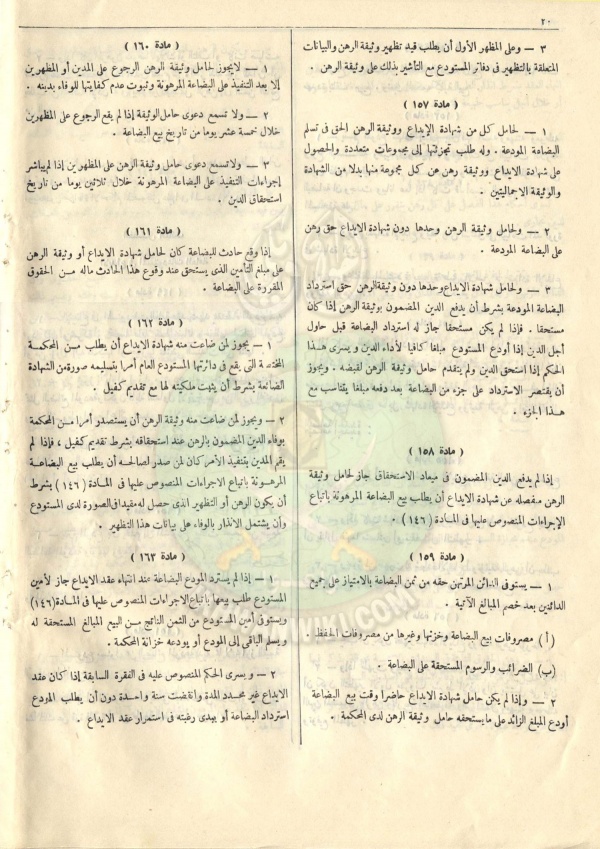 ٢٠
٣ — وعلى المظهر الأول أن يطلب قيد تظهير وثيقة الرهن والبيانات
المتعلقة بالتظهير فى دفاتر المستودع مع التأشير بذلك على وثيقة الرهن .
( مادة ١٥٧ )
١ — لحامل كل من شهادة الإيداع ووثيقة الرهن الحق فى تسلم
البضاعة المودعة . وله طلب تجزئتها إلى مجموعات متعددة والحصول
على شهادة الايداع ووثيقة رهن عن كل مجموعة منها بدلا من الشهادة
والوثيقة الاجماليتين .
٢ — ولحامل وثيقة الرهن وحدها دون شهادة الايداع حق رهن
على البضاعة المودعة .
٣ — ولحامل شهادة الايداع وحدها دون وثيقة الرهن حق استرداد
البضاعة المودعة بشرط أن يدفع الدين المضمون بوثيقة الرهن إذا كان
مستحقا . فإذا لم يكن مستحقا جاز له استرداد البضاعة قبل حلول
أجل الدين إذا أودع المستودع مبلغا كافيا لأداء الدين ويسرى هذا
الحكم إذا استحق الدين ولم يتقدم حامل وثيقة الرهن لقبضه . ويجوز
أن يقتصر الاسترداد على جزء من البضاعة بعد دفعه مبلغا يتناسب مع
هذا الجزء .
( مادة ١٥٨ )
إذا لم يدفع الدين المضمون فى ميعاد الاستحقاق جاز لحامل وثيقة
الرهن منفصله عن شهادة الايداع أن يطلب بيع البضاعة المرهونة باتباع
الإجراءات المنصوص عليها فى المادة ( ١٤٦ ) .
( مادة ١٥٩ )
١ — يستوفى الدائن المرتهن حقه من ثمن البضاعة بالامتياز على جميع
الدائنين بعد خصم المبالغ الآتية .
( أ ) مصروفات بيع البضاعة وخزنها وغيرها من مصروفات الحفظ .
(ب) الضرائب والرسوم المستحقة على البضاعة .
٢ — وإذا لم يكن حامل شهادة الايداع حاضرا وقت بيع البضاعة
أودع المبلغ الزائد على ما يستحقه حامل وثيقة الرهن لدى المحكمة .
( مادة ١٦٠ )
١ — لايجوز لحامل وثيقة الرهن الرجوع على المدين أو المظهرين
إلا بعد التنفيذ على البضاعة المرهونة وثبوت عدم كفايتها للوفاء بدينه .
٢ — ولا تسمع دعوى حامل الوثيقة إذا لم يقع الرجوع على المظهرين
خلال خمسة عشر يوما من تاريخ بيع البضاعة .
٣ — ولاتسمع دعوى حامل وثيقة الرهن على المظهرين إذا لم يباشر
إجراءات التنفيذ على البضاعة المرهونة خلال ثلاثين يوما من تاريخ
استحقاق الدين .
( مادة ١٦١ )
إذا وقع حادث للبضاعة كان لحامل شهادة الايداع أو وثيقة الرهن
على مبلغ التأمين الذى يستحق عند وقوع هذا الحادث ماله من الحقوق
المقررة على البضاعة .
( مادة ١٦٢ )
١ — يجوز لمن ضاعت منه شهادة الايداع أن يطلب من المحكمة
المختصة التى يقع فى دائرتها المستودع العام أمرا بتسليمه صورة من الشهادة
الضائعة بشرط أن يثبت ملكيته لها مع تقديم كفيل .
٢ — ويجوز لمن ضاعت منه وثيقة الرهن أن يستصدر أمرا من المحكمة
بوفاء الدين المضمون بالرهن عند استحقاقه بشرط تقديم كفيل ، فإذا لم
يقم المدين بتنفيذ الأمر كان لمن صدر لصالحه أن يطلب بيع البضاعة
المرهونة باتباع الاجراءات المنصوص عليها فى المادة ( ١٤٦ ) بشرط
أن يكون الرهن أو التظهير الذى حصل له مقيدا فى الصورة لدى المستودع
وأن يشتمل الانذار بالوفاء على بيانات هذا التظهير .
( مادة ١٦٣ )
١ — إذا لم يسترد المودع البضاعة عند انتهاء عقد الايداع جاز لأمين
المستودع طلب بيعها باتباع الاجراءات المنصوص عليها فى المادة (١٤٦)
ويستوفى أمين المستودع من الثمن الناتج من البيع المبالغ المستحقة له
ويسلم الباقى إلى المودع أو يودعه خزانة المحكمة .
٢ — ويسرى الحكم المنصوص عليه فى الفقرة السابقة إذا كان عقد
الايداع غير محدد المدة وانقضت سنة واحدة دون أن يطلب المودع
استرداد البضاعة أو يبدى رغبته فى استمرار عقد الايداع .